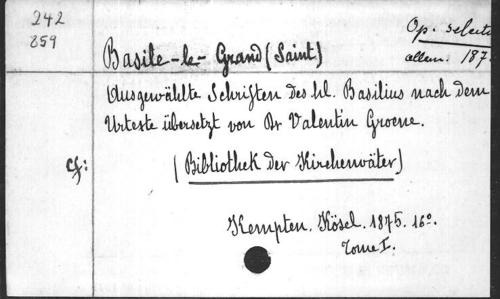 242
859
Op. select
allem. 187
Basile-le-Grand (Saint)
Ausgewählte Schriften des hl. Basilius nach dem
Urtexte übersetzt von Dr Valentin Groene.
cf:
(Bibliothek der Kirchenväter)
Kempten. Kösel. 1875. 16º.
Tome I.